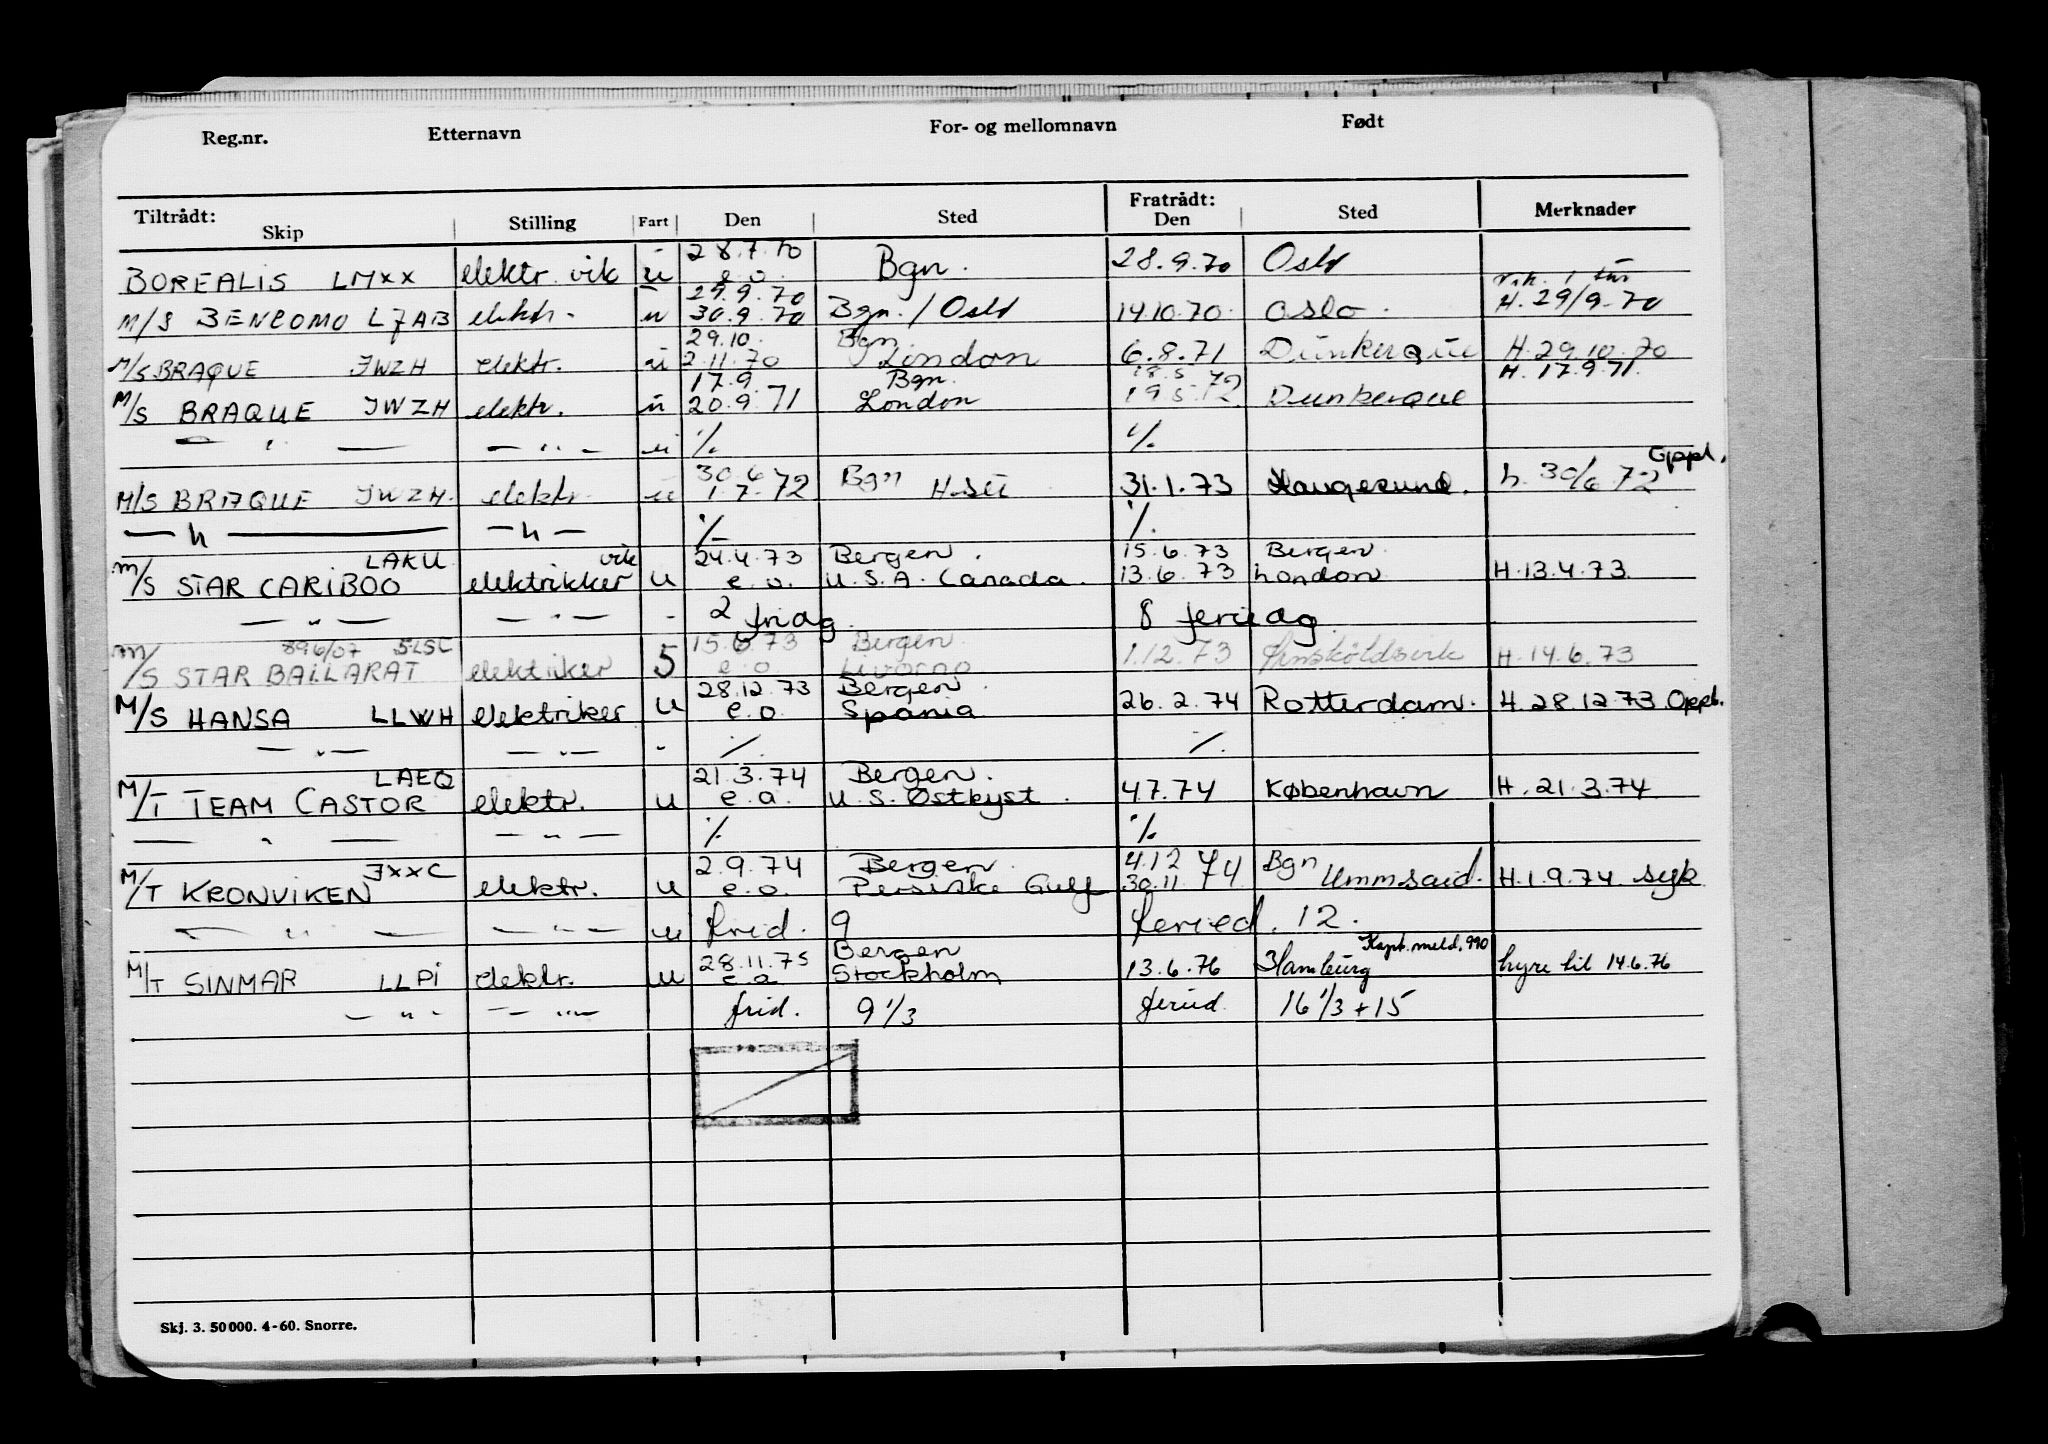 Reg.nr. Etternavn For- og mellomnavn Født
Tiltrådt: Fratrådt:
Skip Stilling Fart Den Sted Den Sted Merknader
28.7.70
BOREALIS LMXX elektr. vik u e.o. Bgn. 28.9.70 Oslo vik. 1 tur
29.9.70
M/S BENCOMO LJAB elektr. u 30.9.70 Bgn./Oslo 14.10.70 Oslo. H. 29/9-70
29.10. Bgn
M/S BRAQUE JWZH elektr. u 2.11.70 London 6.8.71 Dunkerque H. 29.10.70
17.9. Bgn. 18.5.72 H. 17.9.71.
M/S BRAQUE JWZH elektr. u 20.9.71 London 19.5.72 Dunkerque
— " — — " — u ·/. ·/.
30.6 Bgn Oppl.
M/S BRAQUE JWZH. elektr. u 1.7.72 H.su 31.1.73 Haugesund. h. 30/6 72
— " — — " — ·/. ·/.
LAKU vik 24.4.73 Bergen. 15.6.73 Bergen.
M/S STAR CARIBOO elektrikker u e.o. U.S.A. Canada. 13.6.73 London H.13.4.73.
— " — — " — - 2 fridg. 8 feriedg.
896/07 5LSC 15.6.73 Bergen.
M/S STAR BALLARAT elektriker 5 e.o. Livorno 1.12.73 H.14.6.73
28.12.73 Bergen.
M/S HANSA LLWH elektriker u e.o. Spania 26.2.74 Rotterdam. H.28.12.73 Oppl.
— " — — " — - ·/. ·/.
LAEQ 21.3.74 Bergen.
M/T TEAM CASTOR elektr. u e.o. U.S. Østkyst. 4.7.74 København H.21.3.74
— " — — " — ·/. ·/.
JXXC 2.9.74 Bergen. 4.12 Bgn
M/T KRONVIKEN elektr. u e.o. Persiske Gulf 30.11.74 Ummsaid. H.1.9.74. syk
— " — — " — u frid. 9 feried. 12.
28.11.75 Bergen Kapt. meld. 990
M/T SINMAR LLPI elektr. u e.o. Stockholm 13.6.76 Hamburg hyre til 14.6.76
— " - — " — frid. 9 1/3 feried. 16 1/3 + 15
Skj. 3. 50000. 4-60. Snorre.